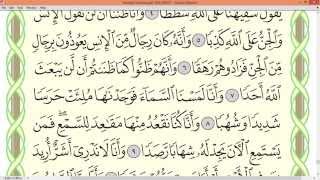 يَقُولُ سَفِيهُنَا عَلَى ٱللَّهِ شَطَطًا ٤ وَأَنَّا ظَنَنَّآ أَن لَّن تَقُولَ ٱلۡإِنسُ
وَٱلۡجِنُّ عَلَى ٱللَّهِ كَذِبًا ٥ وَأَنَّهُۥ كَانَ رِجَالٞ مِّنَ ٱلۡإِنسِ يَعُوذُونَ بِرِجَالٖ
مِّنَ ٱلۡجِنِّ فَزَادُوهُمۡ رَهَقٗا ٦ وَأَنَّهُمۡ ظَنُّواْ كَمَا ظَنَنتُمۡ أَن لَّن يَبۡعَثَ
ٱللَّهُ أَحَدٗا ٧ وَأَنَّا لَمَسۡنَا ٱلسَّمَآءَ فَوَجَدۡنَٰهَا مُلِئَتۡ حَرَسٗا
شَدِيدٗا وَشُهُبٗا ٨ وَأَنَّا كُنَّا نَقۡعُدُ مِنۡهَا مَقَٰعِدَ لِلسَّمۡعِۖ فَمَن
يَسۡتَمِعِ ٱلۡأٓنَ يَجِدۡ لَهُۥ شِهَابٗا رَّصَدٗا ٩ وَأَنَّا لَا نَدۡرِيٓ أَشَرٌّ أُرِيدَ